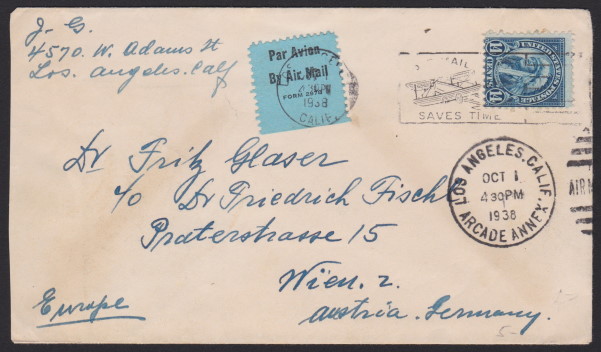 J. G.
4570. W. Adams St
Los. Angeles. Calif
Par Avion
By Air Mail
FORM
1938
CALIF.
AIR MAIL
SAVES TIME
UNITED STATES POSTAGE
14 CENTS 14
LOS ANGELES, CALIF.
OCT 1
430PM
1938
ARCADE ANNEX.
AIR M
Dr Fritz Glaser
c/o Dr Friedrich Fischl
Praterstrasse 15
Wien. 2.
Austria. Germany.
Europe